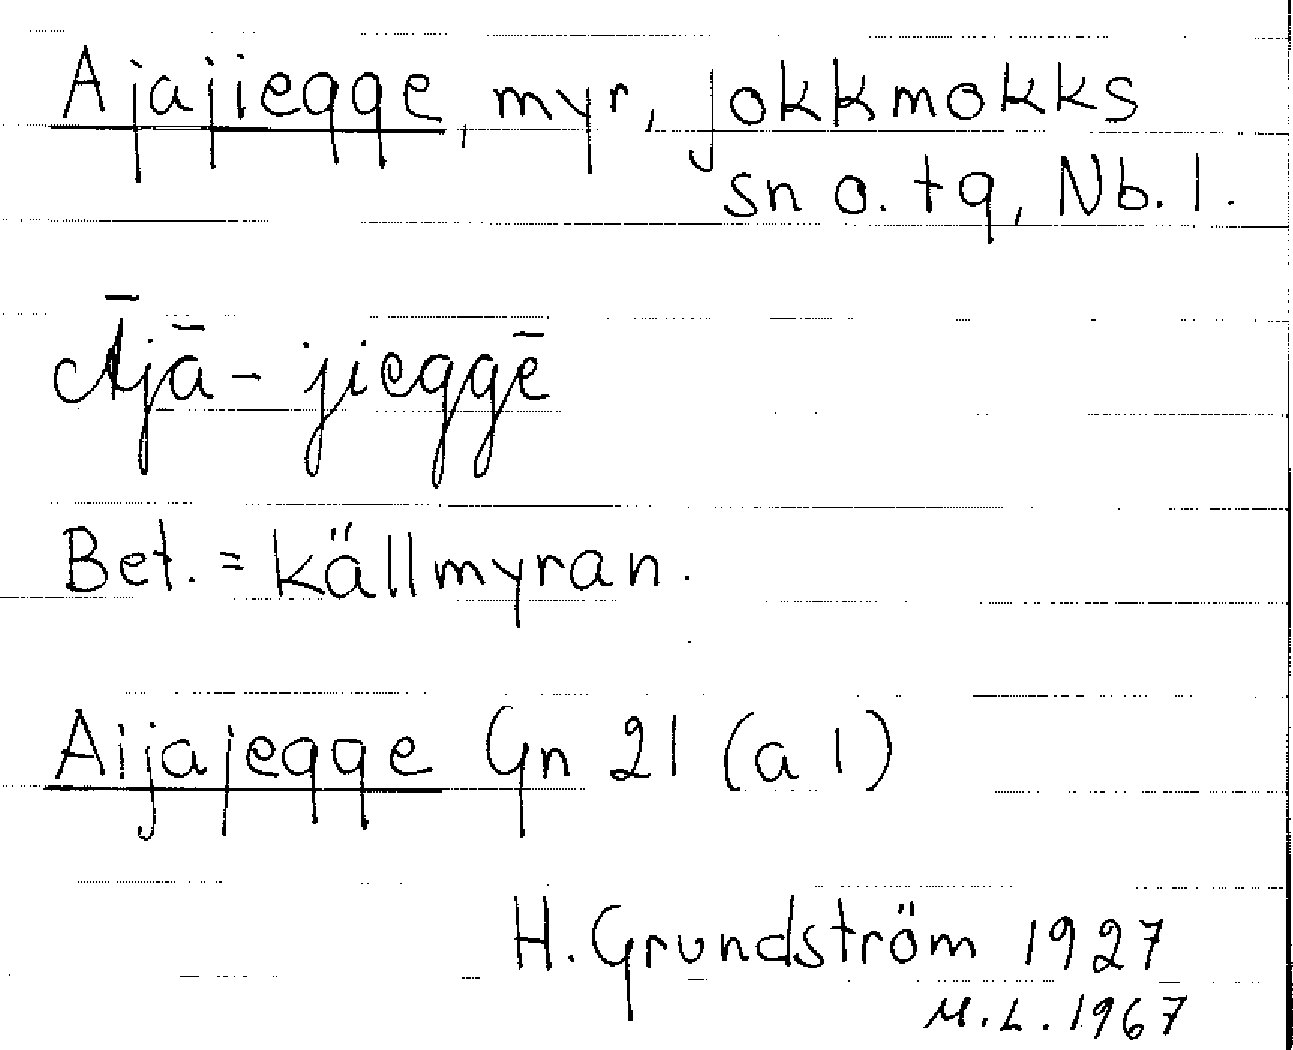 Ajajiegge, myr, Jokkmokks
sn o. tg, Nb. l.
Ājā-jieggē
Bet. = källmyran.
Aijajegge Gn 21 (a 1)
H. Grundström 1927
M.L. 1967